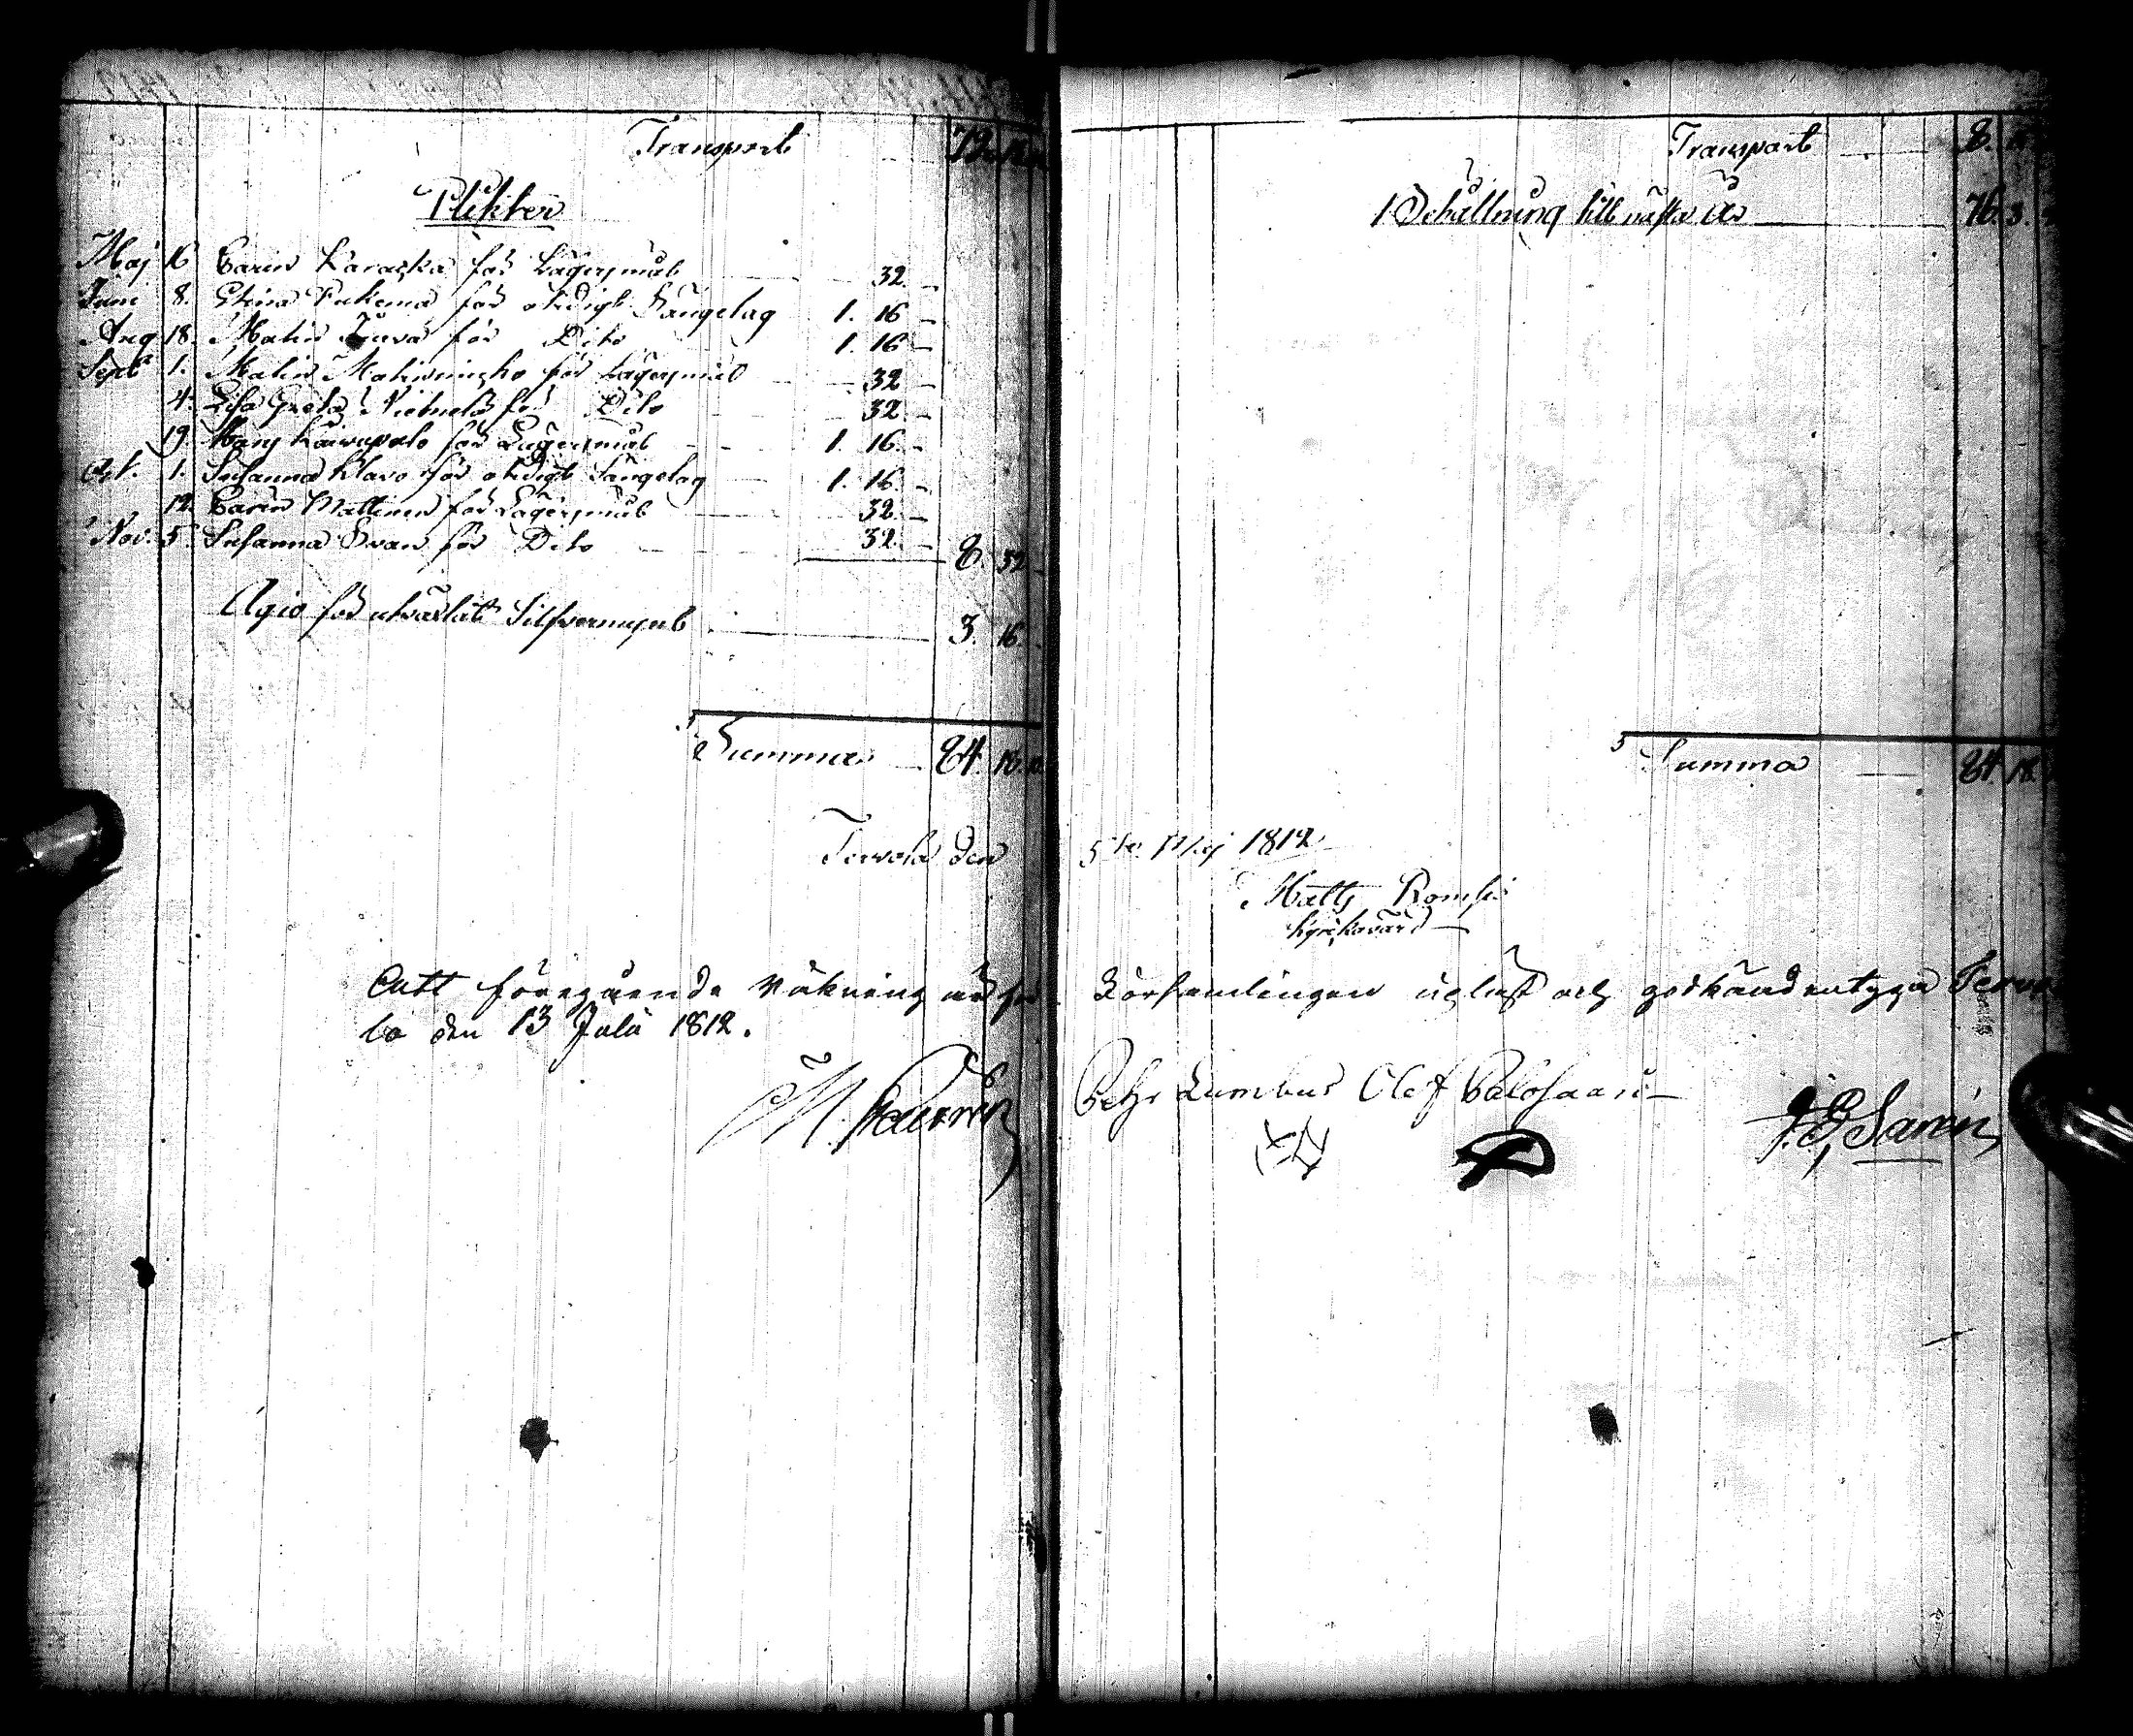 Transport 72.
Plikter
Maj 16 Carin Karaska för Lägersmål 32. –
Juni 8. Stina för otidigt Sängelag 1. 16 –
Aug 18. Malin för Dito 1. 16 –
Septbr 1. Malin för Lägersmål 32 –
4. Lisa Greta Niemelä för Dito 32. –
19. för Lägersmål 1. 16. –
Oct. 1. Susanna Klavo för otidigt Sängelag 1. 16. –
12. Carin Mattinen för Lägersmål 32. –
Nov. 5. Susanna Svan för Dito 32. – 8. 32 –
Agio för utväxlat Silfvermynt 3. 16.
Summa 84. 18.
Transport 8.
Behållning till nästa År 76. 3.
Summa 84 18.
Tervola den 5te Maj 1812
Matts
Kyrkovärd
Att föregående Räkning är för Församlingen upläst och godkänd intyga Tervo
la den 13 Julii 1812.
Pehr Lumbus Olof Palosaari